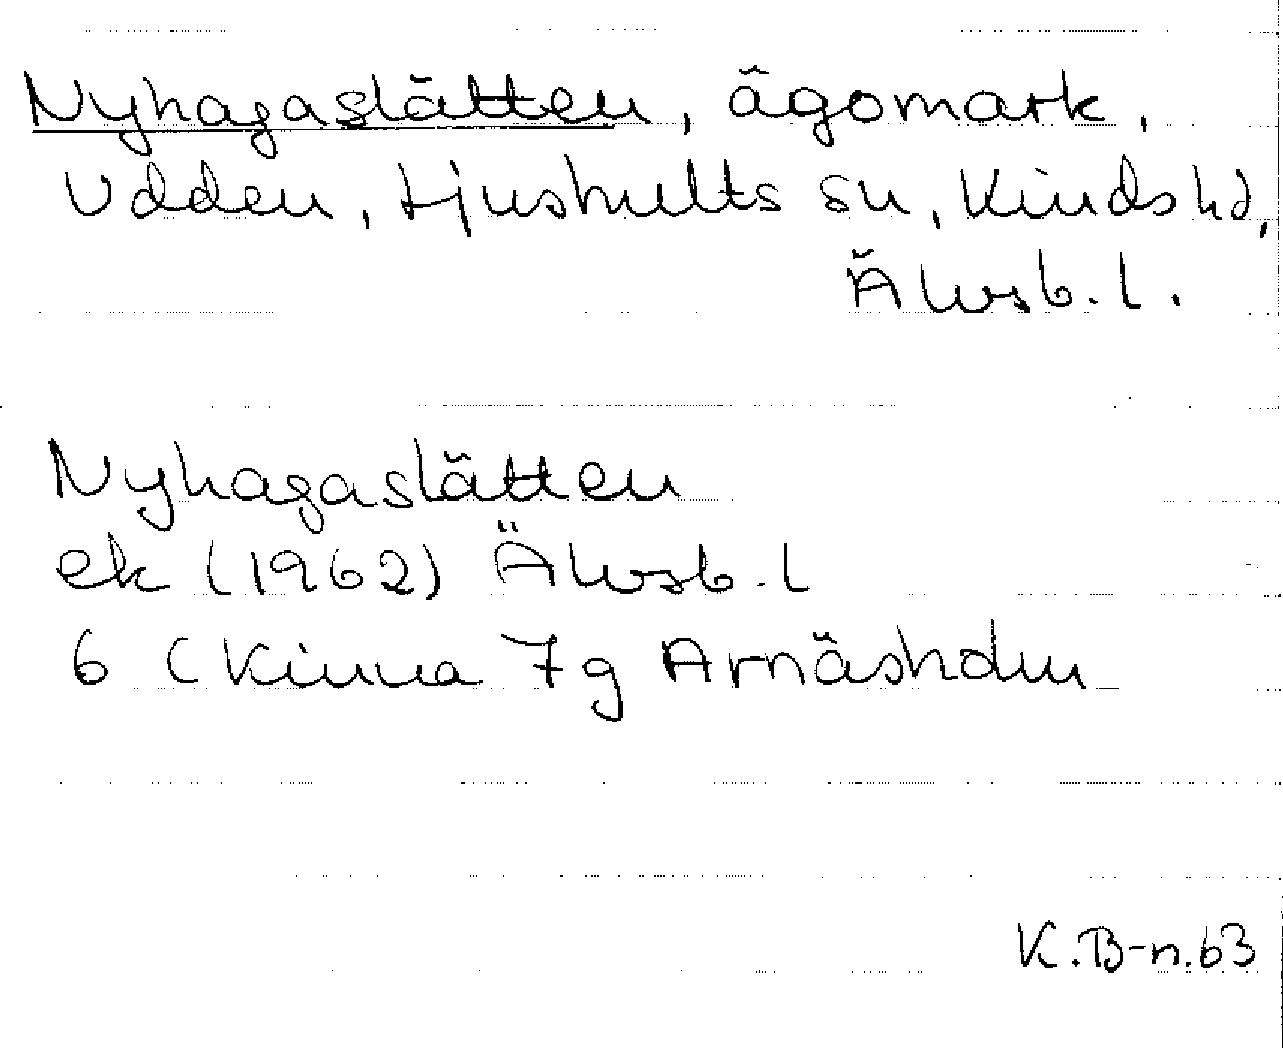 Nyhagaslätten, ägomark,
Udden, Ljushults sn, Kinds hd,
Älvsb. l.
Nyhagaslätten
ek (1962) Älvsb. l
6 C Kinna 7g Arnäsholm
K.B-n.63